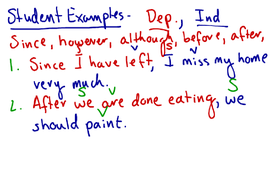 Student Examples - Dep., Ind
Since, however, although, before, after,
is
V V
1. Since I have left, I miss my home
very much. S
S V
2. After we are done eating, we
V
should paint.